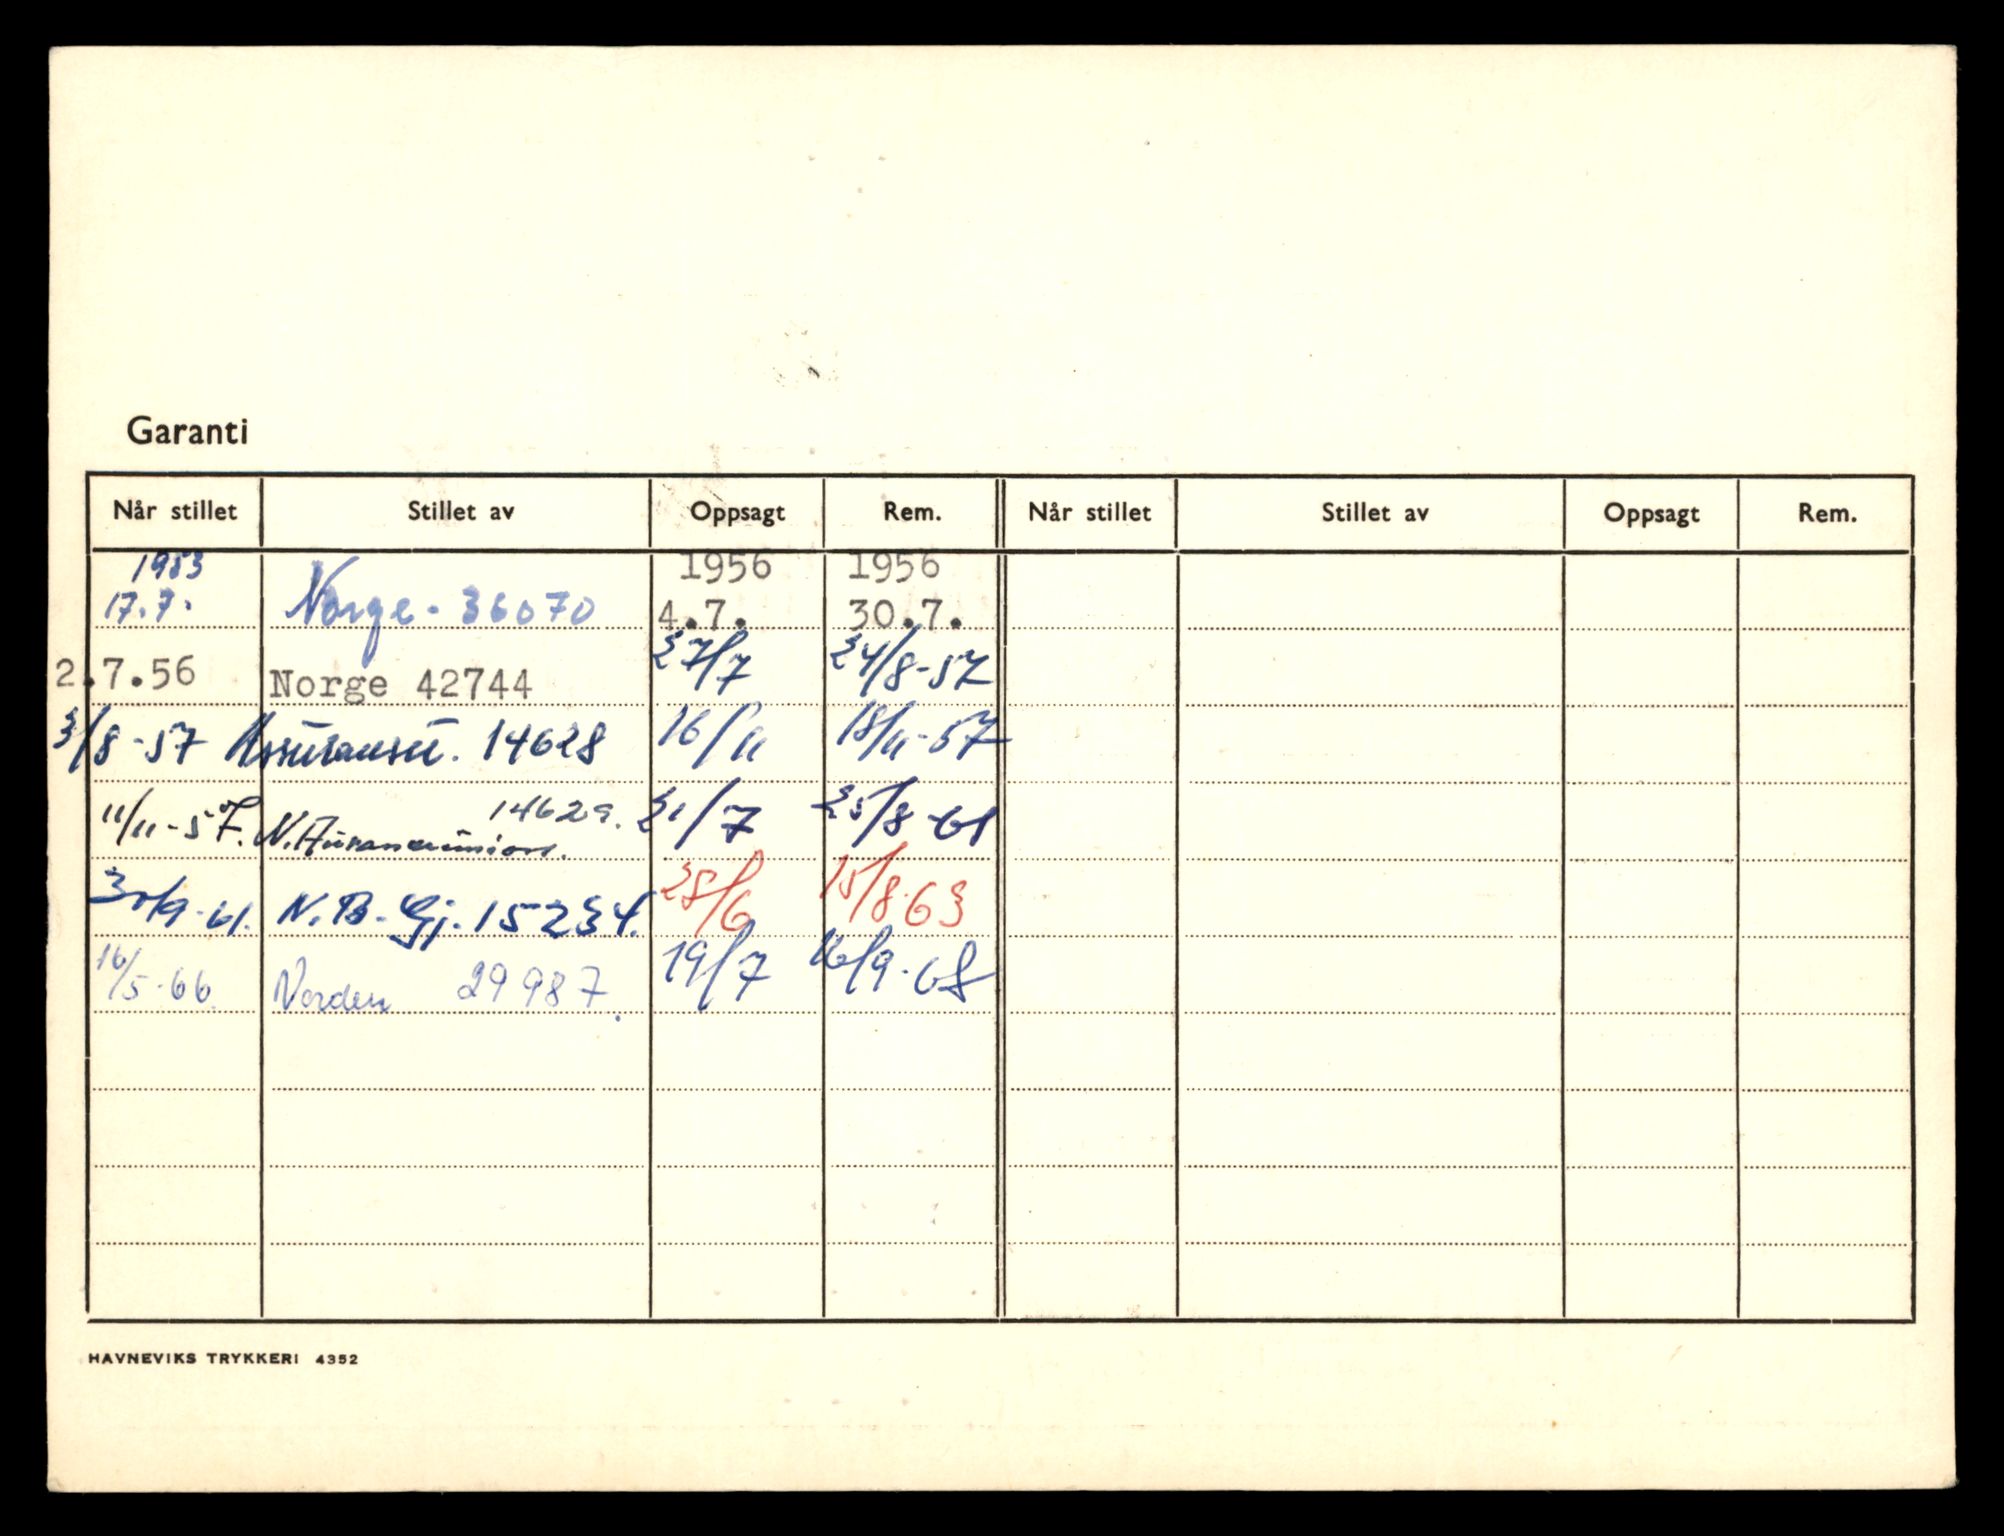 Garanti
Når stillet Stillet av Oppsagt Rem. Når stillet Stillet av Oppsagt Rem.
1953 1956 1956
17.7. Norge - 36070 4.7. 30.7.
2.7.56 Norge 42744 27/7 24/8-57
3/8-57 14628 16/11 18/11-57
11/11-57. N. 14629. 21/7 25/8-61
30/9-61. N.B.Gj. 15234. 28/6 15/8-63
16/5-66. Norden 29987. 19/7 16/9-68
HAVNEVIKS TRYKKERI 4352